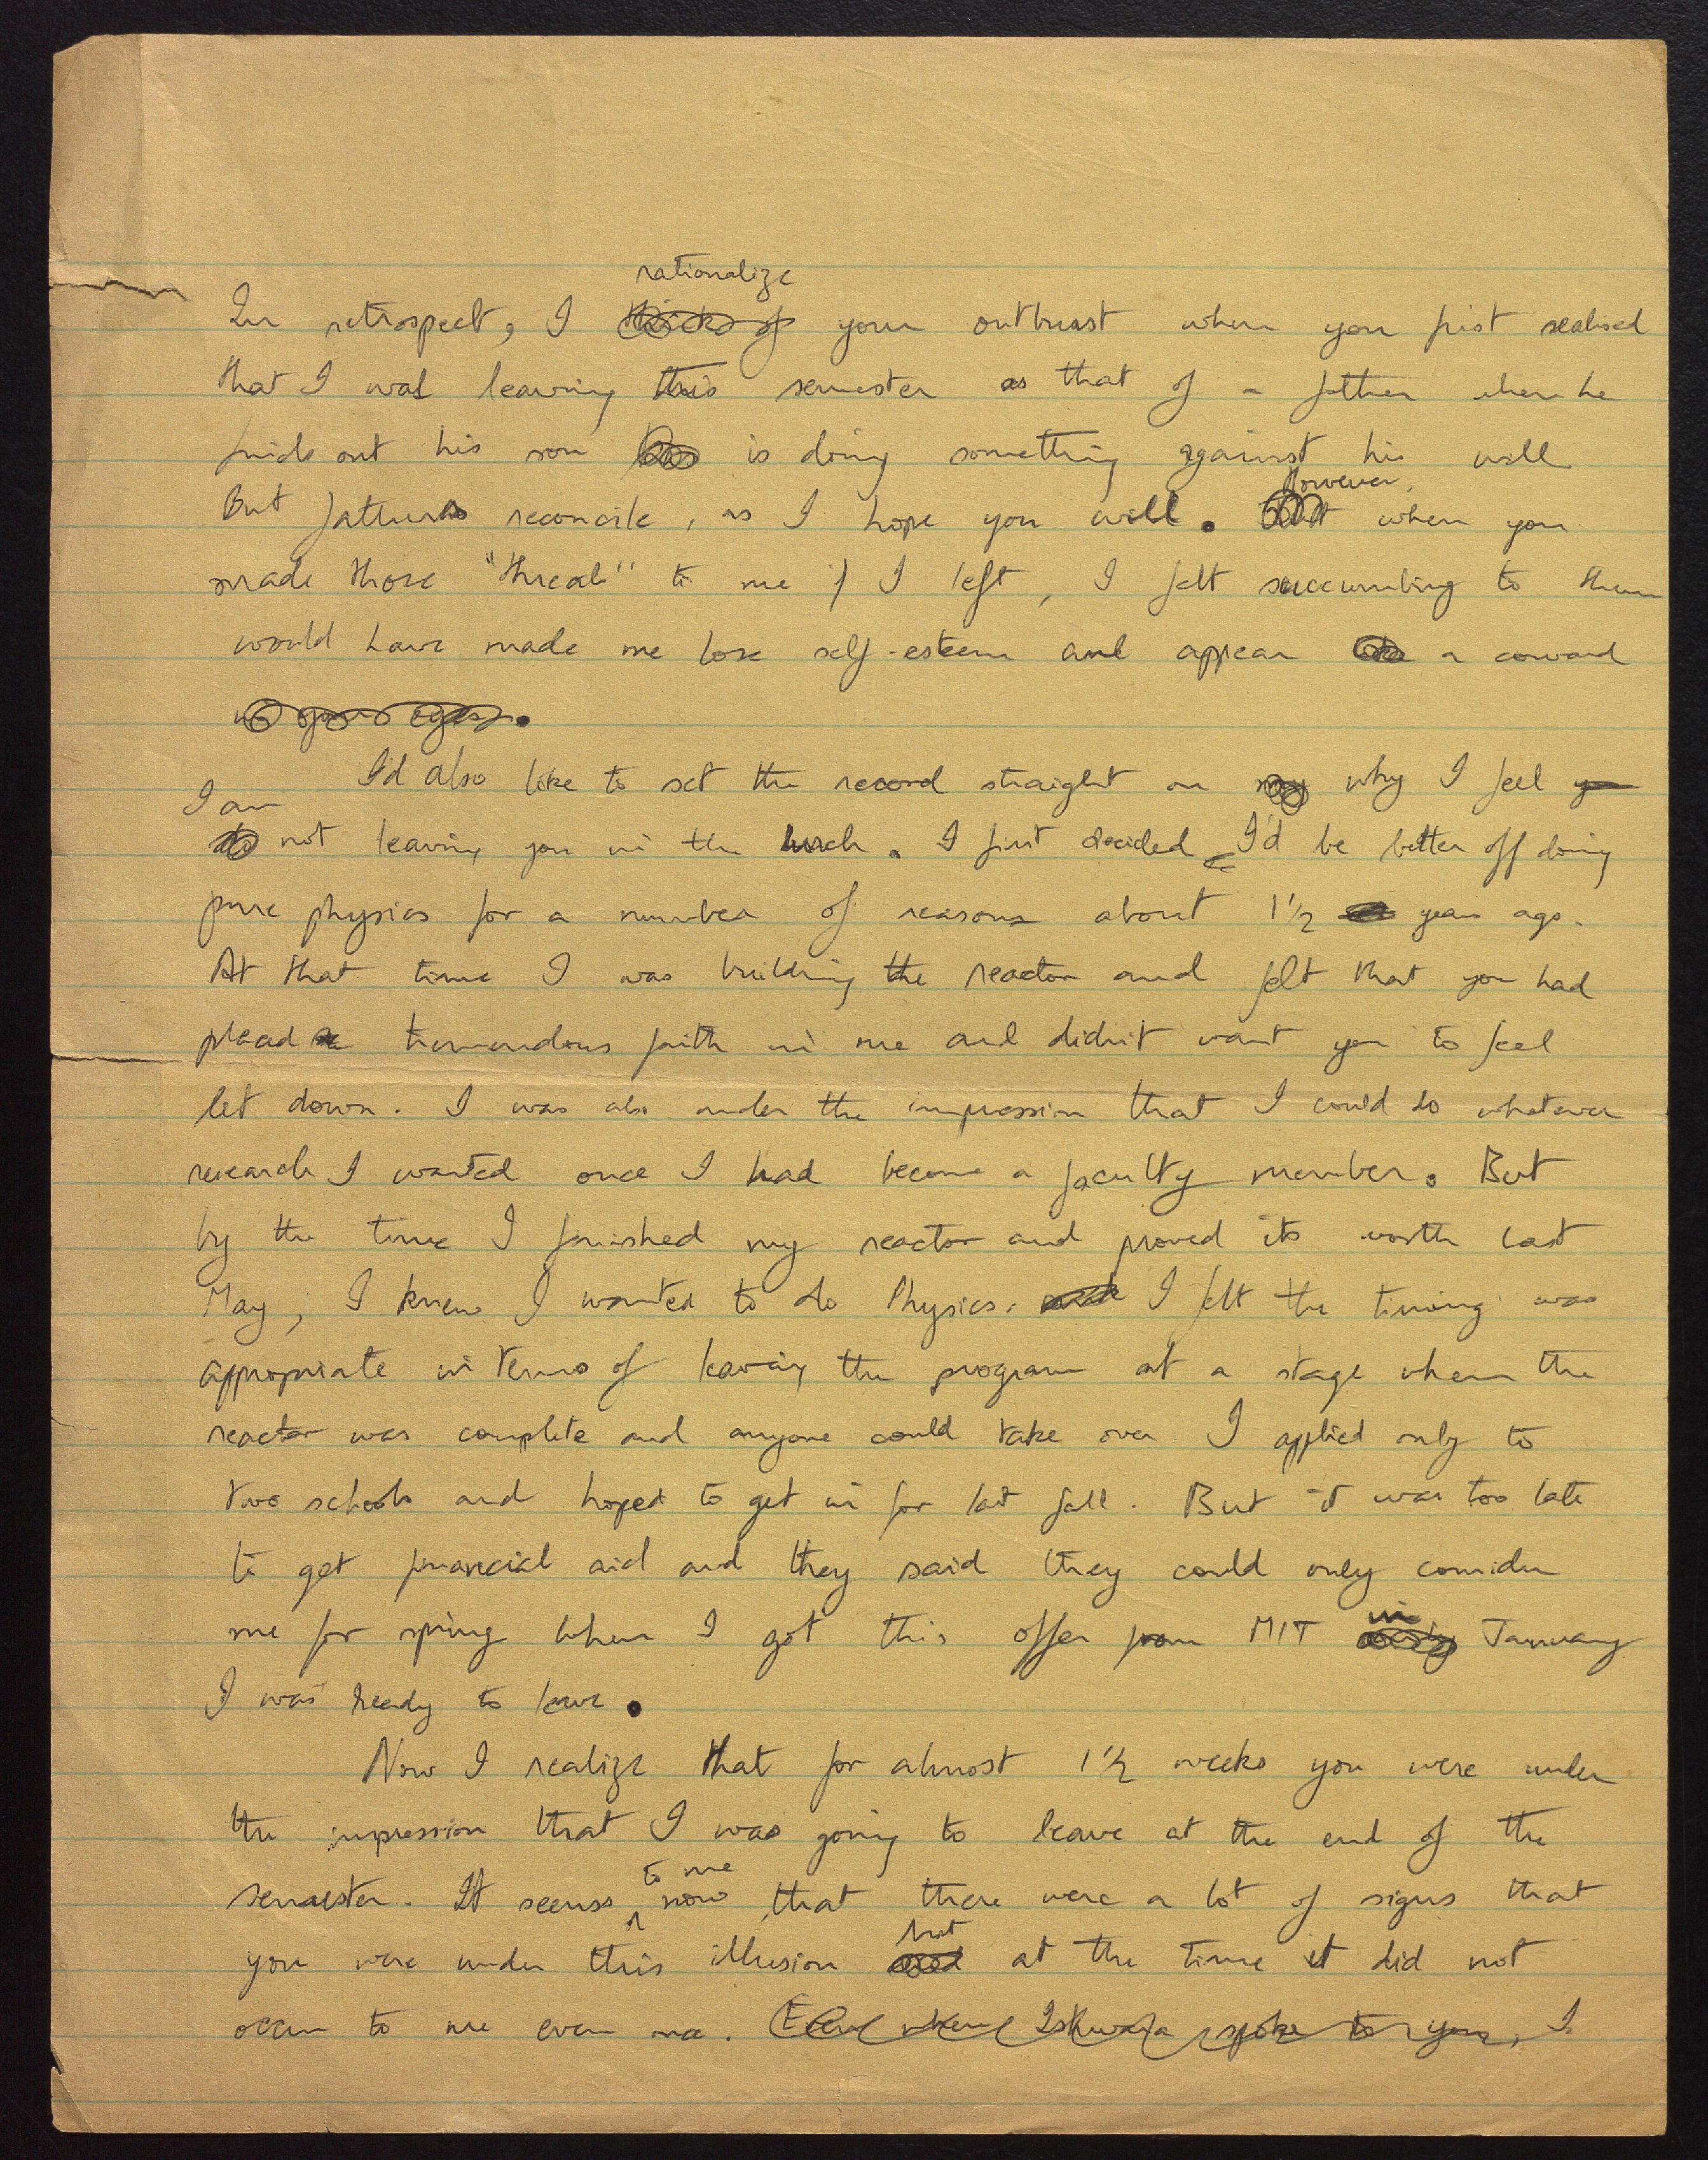 rationalize
In retrospect, I thinks of your outburst when you first realised
that I was leaving this semester as that of a father when he
finds out his son is doing something against his will
however,
But fathers reconcile, as I hope you will. But when you
made those "threats" to me if I left, I felt succumbing to them
would have made me lose self-esteem and appear a coward
in your eyes.
I'd also like to set the record straight on my why I feel
I am
do not leaving you in the lurch. I first decided I'd be better off doing
pure physics for a number of reasons about 1½ years ago.
At that time I was building the reactor and felt that you had
placed tremendous faith in me and didn't want you to feel
let down. I was also under the impression that I could do whatever
research I wanted once I had become a faculty member. But
by the time I finished my reactor and proved its worth last
May, I knew I wanted to do Physics. I felt the timing was
appropriate in terms of leaving the program at a stage when the
reactor was complete and anyone could take over I applied only to
two schools and hoped to get in for last fall. But it was too late
to get financial aid and they said they could only consider
in
me for spring when I got this offer from MIT January
I was ready to leave.
Now I realize that for almost 1½ weeks you were under
the impression that I was going to leave at the end of the
to me
semester. It seems now that there were a lot of signs that
but
you were under this illusion and at the time it did not
occur to me even once. Even when spoke to you, I